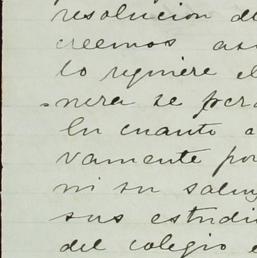 resolucion de
creemos asi
lo regniere el
nera se
En cuanto a
vamente por
ni su
sus estudi
del colegio e